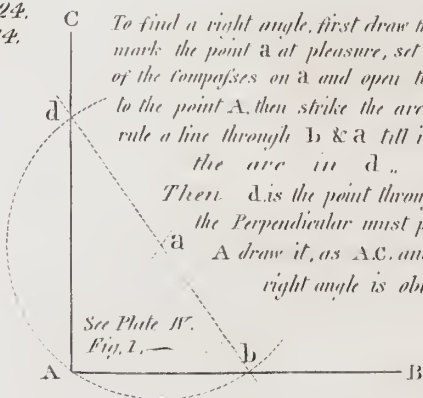 24.
4.
C
To find a right angle, first draw
mark the point a at pleasure, set
of the Compasses on a and open
to the point A, then strike the arc
rule a line through b & a till
the arc in d „
Then d. is the point
the Perpendicular must
A draw it, as A.C. and
right angle is
d
a
See Plate IV.
Fig. 1. —
b
A
B